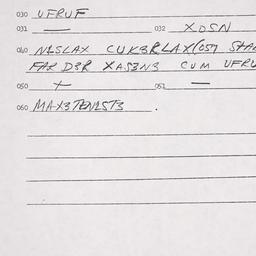 030 UFRUF
031 — 032 XOSN
040 NESLAX CUKBRLAX(057 STAR
FAR DBR XASBNB CUM UFRU
050 + 051 —
060 MAXBTENESTB .